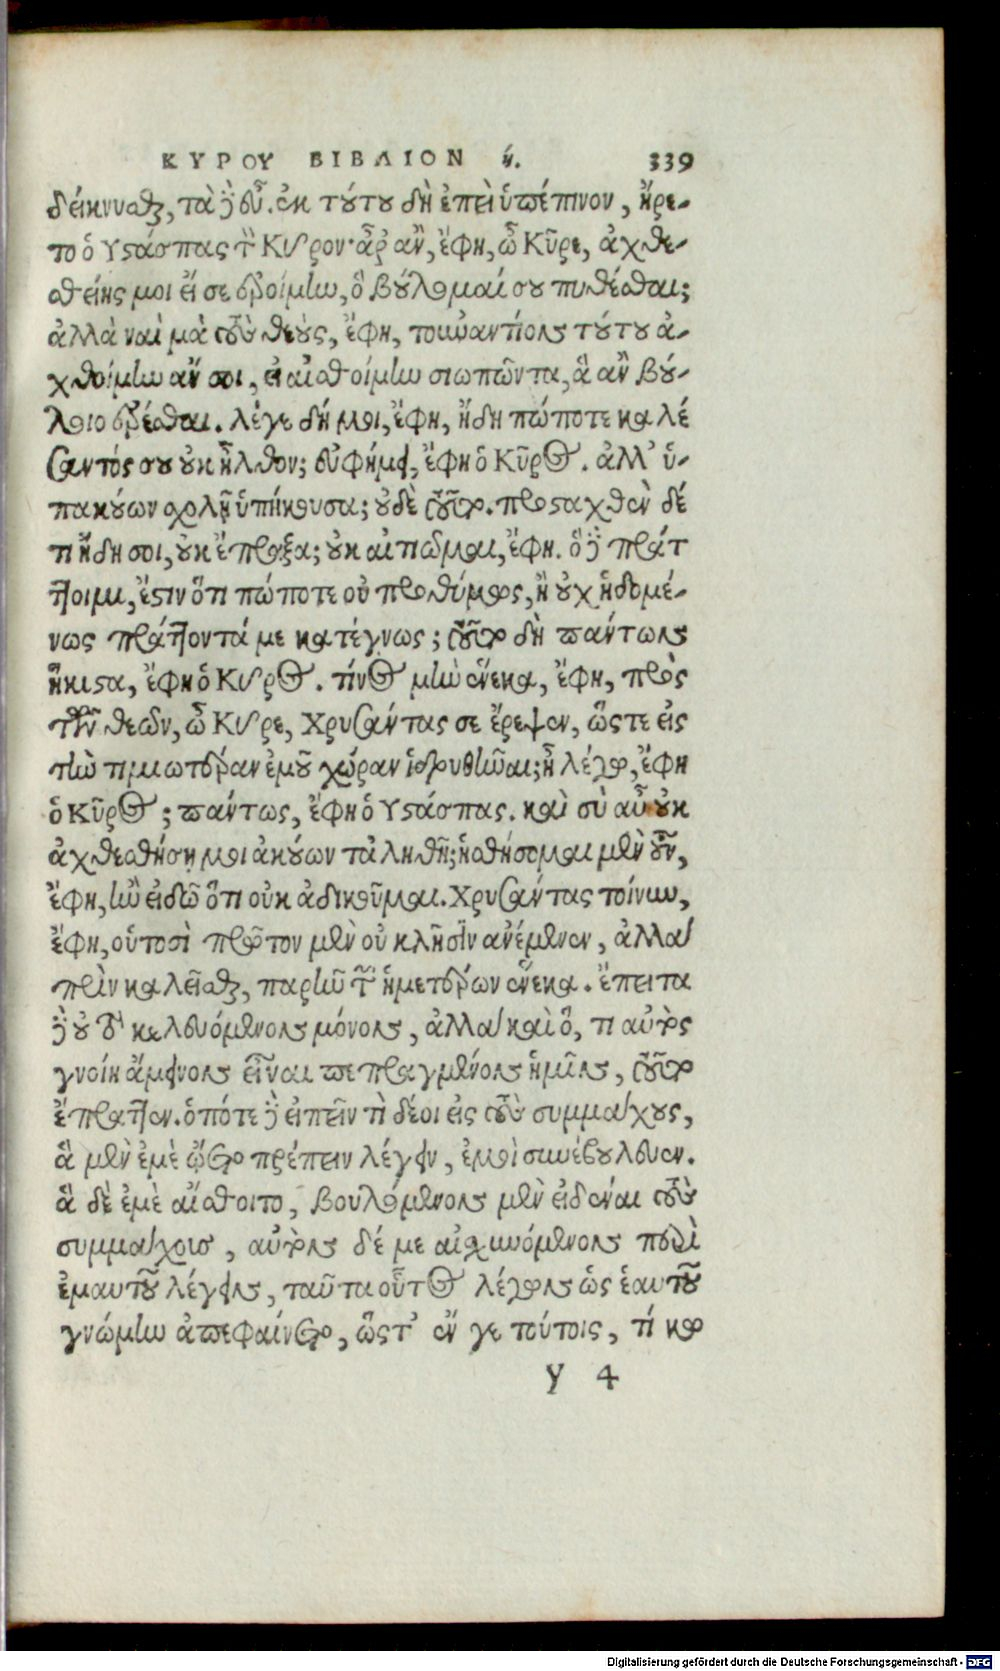 ΚΥΡΟΥ ΒΙΒΛΙΟΝ ή. 339
δείκνυσθαι, τὰ δὲ εὖ. ἐκ τούτου δὴ ἐπεὶ ὑπέπινον, ἤρε-
το ὁ Υστάσπας τὸν Κῦρον· ἆρ' ἂν, ἔφη, ὦ Κῦρε, ἀχθε-
σθείης μοι εἴ σε ἐροίμην, ὃ βούλομαί σου πυθέσθαι;
ἀλλὰ ναὶ μὰ τοὺς θεοὺς, ἔφη, τουναντίον τούτου ἀ-
χθοίμην ἄν σοι, εἰ αἰσθοίμην σιωπῶντα, ἃ ἂν βού-
λοιο ἐρέσθαι. λέγε δή μοι, ἔφη, ἤδη πώποτε καλέ
σαντός σου οὐκ ἦλθον; εὐφήμει, ἔφη ὁ Κῦρος. ἀλλ' ὑ-
πακούων σχολῇ ὑπήκουσα; οὐδὲ τοῦτο. προσταχθὲν δέ
τι ἤδη σοι, οὐκ ἔπραξα; οὐκ αἰτιῶμαι, ἔφη. ὃ δὲ πράτ
τοιμι, ἔστιν ὅτι πώποτε οὐ προθύμως, ἢ οὐχ ἡδομέ-
νως πράττοντά με κατέγνως; τοῦτο δὴ πάντων
ἥκιστα, ἔφη ὁ Κῦρος. τίνος μὴν ἕνεκα, ἔφη, πρὸς
τῶν θεῶν, ὦ Κῦρε, Χρυσάντας σε ἔρεψεν, ὥστε εἰς
τὴν τιμιωτέραν ἐμοῦ χώραν ἱδρυθῆναι; ἦ λέγω, ἔφη
ὁ Κῦρος; πάντως, ἔφη ὁ Υστάσπας. καὶ σὺ αὖ οὐκ
ἀχθεσθήσῃ μοι ἀκούων τἀληθῆ; ἡσθήσομαι μὲν οὖν,
ἔφη, ἢν εἰδῶ ὅτι οὐκ ἀδικοῦμαι. Χρυσάντας τοίνυν,
ἔφη, οὑτοσὶ πρῶτον μὲν οὐ κλῆσιν ἀνέμενεν, ἀλλὰ
πρὶν καλεῖσθαι, παρῆν τῶν ἡμετέρων ἕνεκα. ἔπειτα
δὲ οὐ τὸ κελευόμενον μόνον, ἀλλὰ καὶ ὅ, τι αὐτὸς
γνοίη ἄμεινον εἶναι πεπραγμένον ἡμῖν, τοῦτο
ἔπραττεν. ὁπότε δὲ εἰπεῖν τι δέοι εἰς τοὺς συμμάχους,
ἃ μὲν ἐμὲ ᾤετο πρέπειν λέγειν, ἐμοὶ συνέβουλευεν.
ἃ δὲ ἐμὲ αἴσθοιτο, βουλόμενον μὲν εἰδέναι τοὺς
συμμάχοις, αὐτὸν δέ με αἰσχυνόμενον περὶ
ἐμαυτοῦ λέγειν, ταῦτα οὗτος λέγων ὡς ἑαυτοῦ
γνώμην ἀπεφαίνετο, ὥστ' ἔν γε τούτοις, τί κω
Υ 4
Digitalisierung gefördert durch die Deutsche Forschungsgemeinschaft - DFG